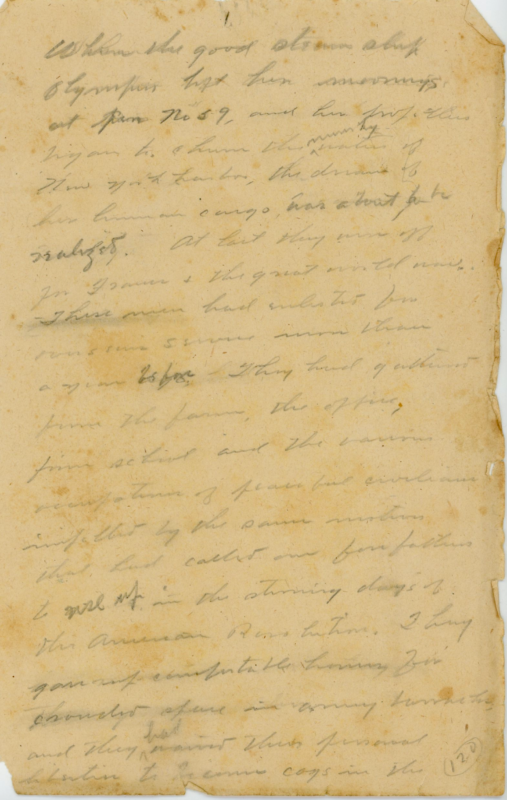 1
When the good steam ship
Olympic left her moorings
at Pier No 59, and her propellers
began to churn the murky waters of
New York harbor, the dream of
her human cargo, was about to be
realized. At last they were off
for France & the great world war.
These men had enlisted for
overseas service more than
a year before. They had gathered
from the farm, the office,
from school and the various
occupations of peaceful civilians
impelled by the same motives
that had called our forefathers
to in the stirring days of
the American Revolution. They
gave up comfortable homes for
crowded space in army barracks
and they had waived their personal
liberties to become cogs in the
120